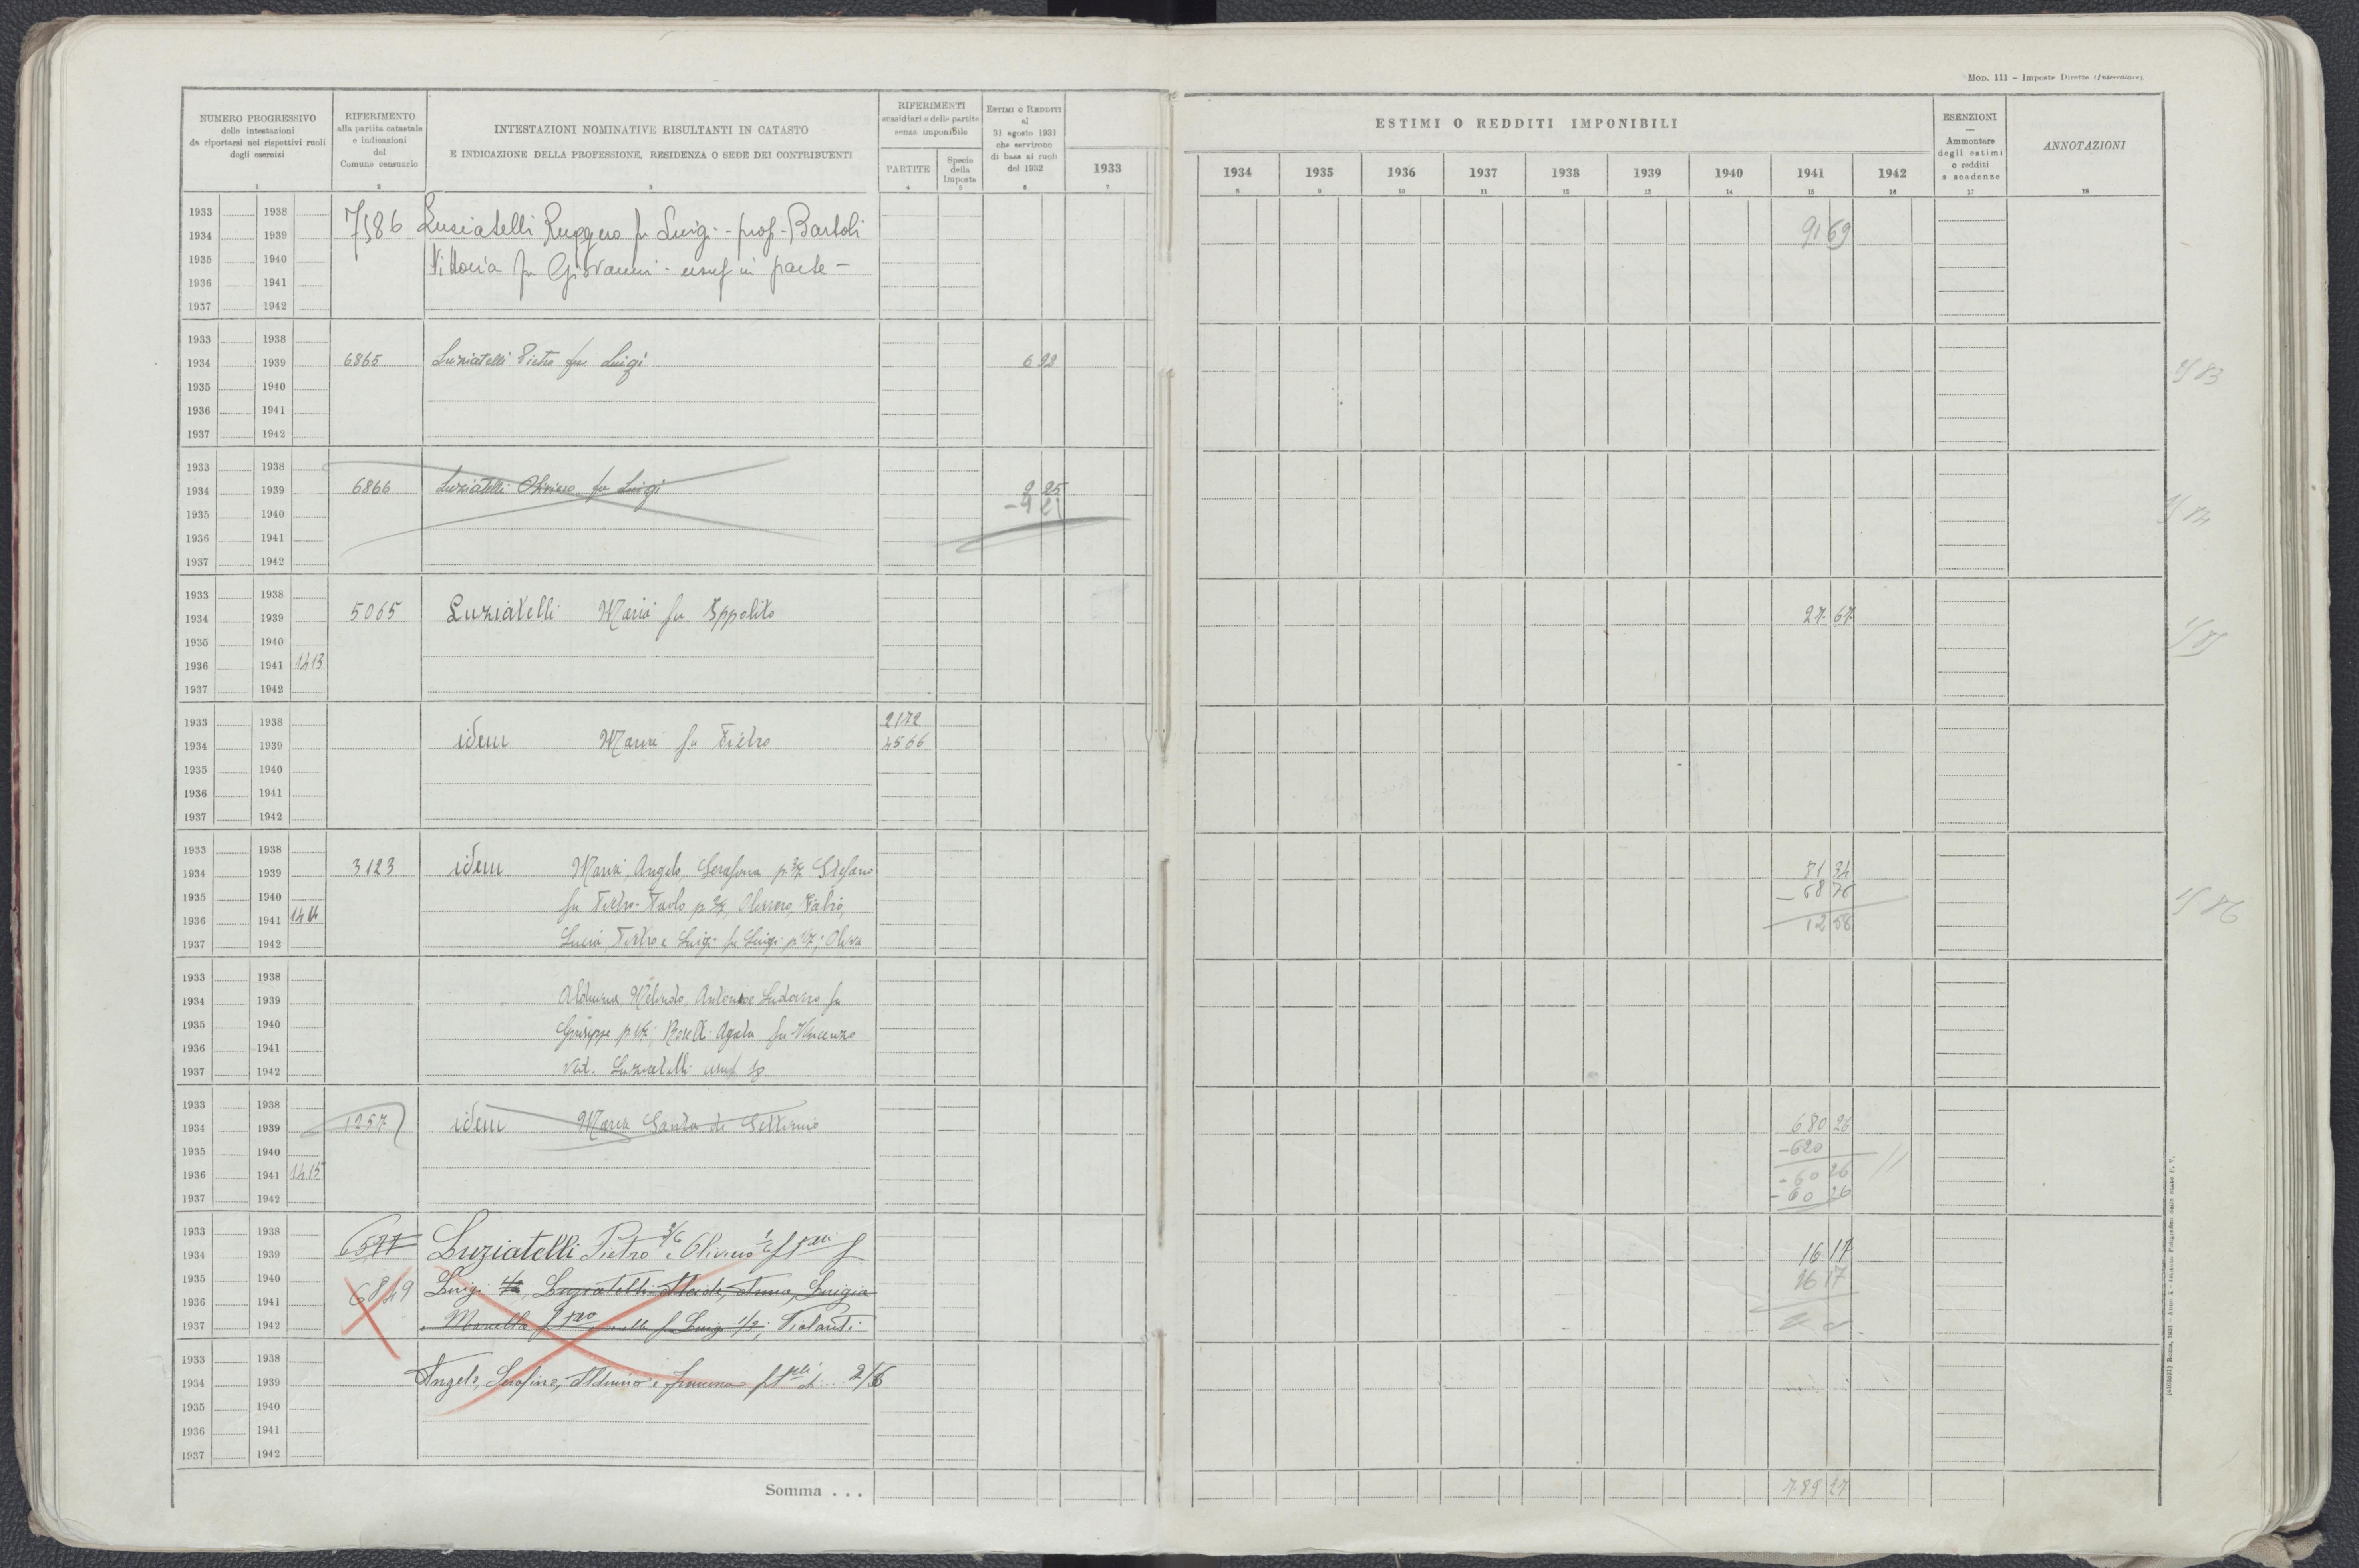 Mod. 111 – Imposte Dirette (Intercalare).
NUMERO PROGRESSIVO
delle intestazioni
da riportarsi nei rispettivi ruoli
degli esercizi
1
RIFERIMENTO
alla partita catastale
e indicazioni
del
Comune censuario
2
INTESTAZIONI NOMINATIVE RISULTANTI IN CATASTO
E INDICAZIONE DELLA PROFESSIONE, RESIDENZA O SEDE DEI CONTRIBUENTI
3
RIFERIMENTI
sussidiari e delle partite
senza imponibile
PARTITE
4
Specie
della
Imposta
5
Estimi o Redditi
al
31 agosto 1931
che servirono
di base ai ruoli
del 1932
6
1933
7
ESTIMI O REDDITI IMPONIBILI
1934 1935 1936 1937 1938 1939 1940 1941 1942
8 9 10 11 12 13 14 15 16
ESENZIONI
Ammontare
degli estimi
o redditi
e scadenze
17
ANNOTAZIONI
18
1933 1938
1934 1939
1935 1940
1936 1941
1937 1942
7586 Luziatelli Ruggero fu Luigi - prop - Bartoli
Vittoria fu Giovanni - usuf in parte -
91 69
1933 1938
1934 1939
1935 1940
1936 1941
1937 1942
6865 Luziatelli Pietro fu Luigi
6 92
1933 1938
1934 1939
1935 1940
1936 1941
1937 1942
6866 Luziatelli Oliviero fu Luigi
1933 1938
1934 1939
1935 1940
1936 1941 1413
1937 1942
5065 Luziatelli Maria fu Ippolito
27 67
1933 1938
1934 1939
1935 1940
1936 1941
1937 1942
idem Maria fu Pietro
2172
4566
1933 1938
1934 1939
1935 1940
1936 1941 1414
1937 1942
3123 idem Maria, Angelo, Serafina p 3/7 Stefano
fu Pietro-Paolo p 3/7, Oliviero,
Lucia, Pietro e Luigi fu Luigi p 1/7; Oliva
81 34
- 68 76
12 58
1933 1938
1934 1939
1935 1940
1936 1941
1937 1942
Giuseppe p 1/7; Agata fu Vincenzo
ved. Luziatelli usuf
1933 1938
1934 1939
1935 1940
1936 1941 1415
1937 1942
1257 idem Maria Santa di Settimio
680 26
- 620
- 60 26
- 60 26
1933 1938
1934 1939
1935 1940
1936 1941
1937 1942
6577 Luziatelli Pietro 3/6 e Oliviero 1/6
6849 Luigi
16 17
16 17
1933 1938
1934 1939
1935 1940
1936 1941
1937 1942
Angelo, Serafino, 2/6
Somma . . .
789 27